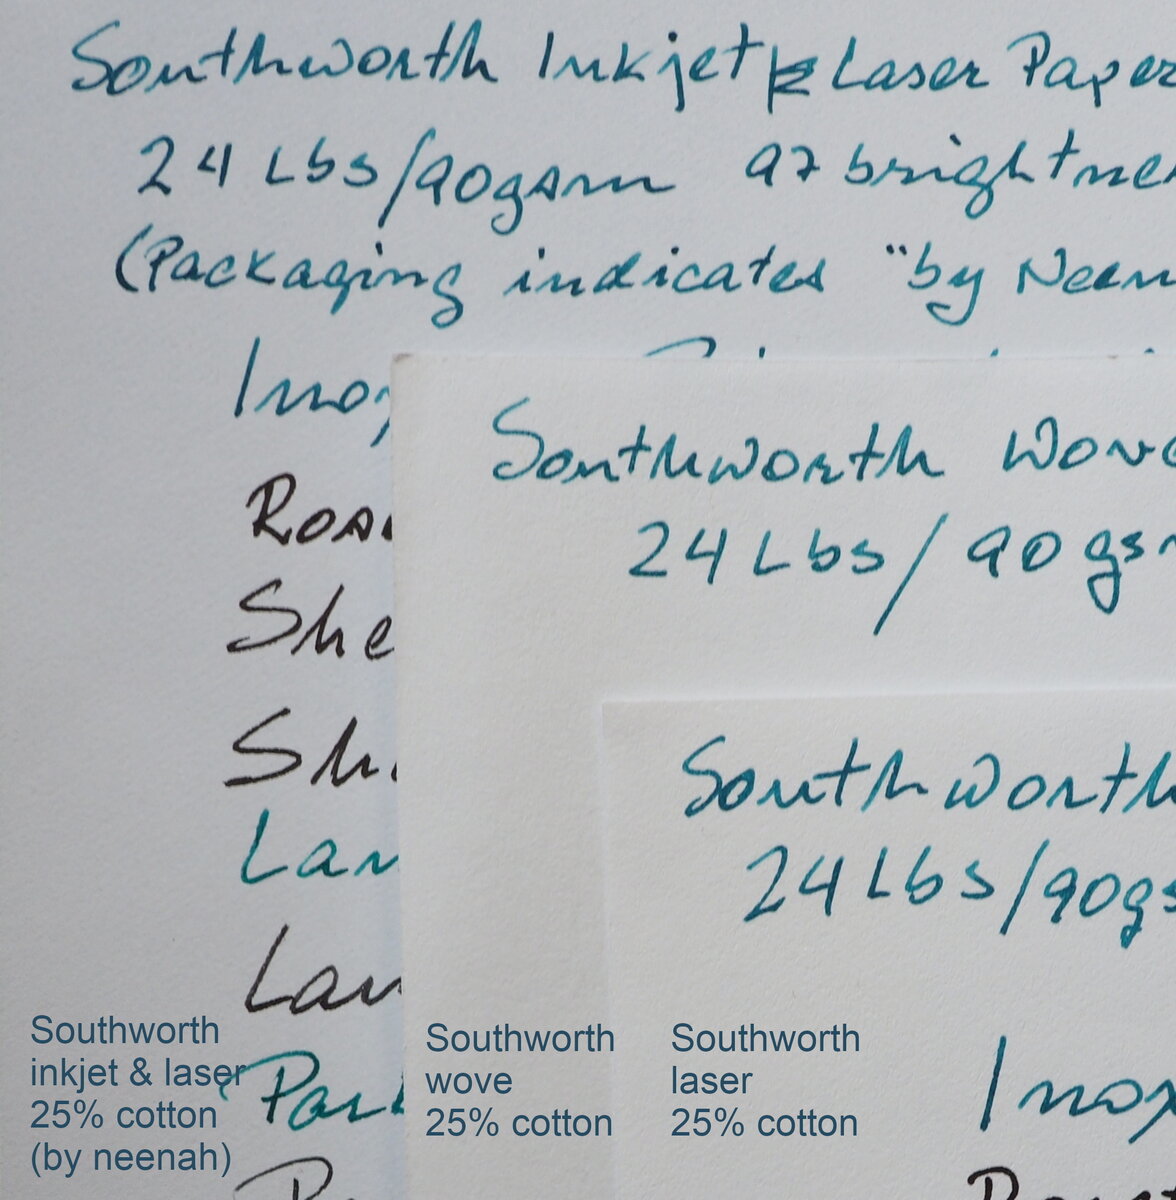 Southworth Inkjet & Laser Paper
24 Lbs/90gsm 97 brightnes
(Packaging indicates "by Neen
Inox
Road
She
Sh
Southworth Wove
24 Lbs/90gsm
Lan
Southworth
24 Lbs/90gs
Lan
Par
Inox
Southworth
inkjet & laser
25% cotton
(by neenah)
Southworth
wove
25% cotton
Southworth
laser
25% cotton